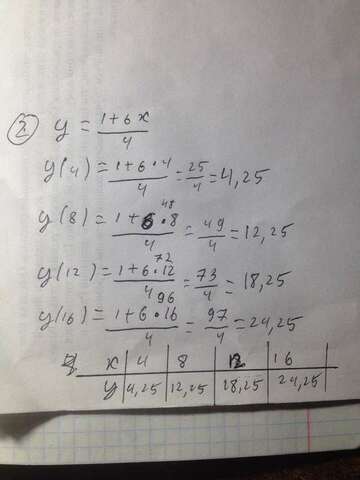 2) y = (1+6x)/4
y(4) = (1+6·4)/4 = 25/4 = 4,25
48
y(8) = (1+6·8)/4 = 49/4 = 12,25
72
y(12) = (1+6·12)/4 = 73/4 = 18,25
96
y(16) = (1+6·16)/4 = 97/4 = 24,25
x | 4 | 8 | 12 | 16
y | 4,25 | 12,25 | 18,25 | 24,25